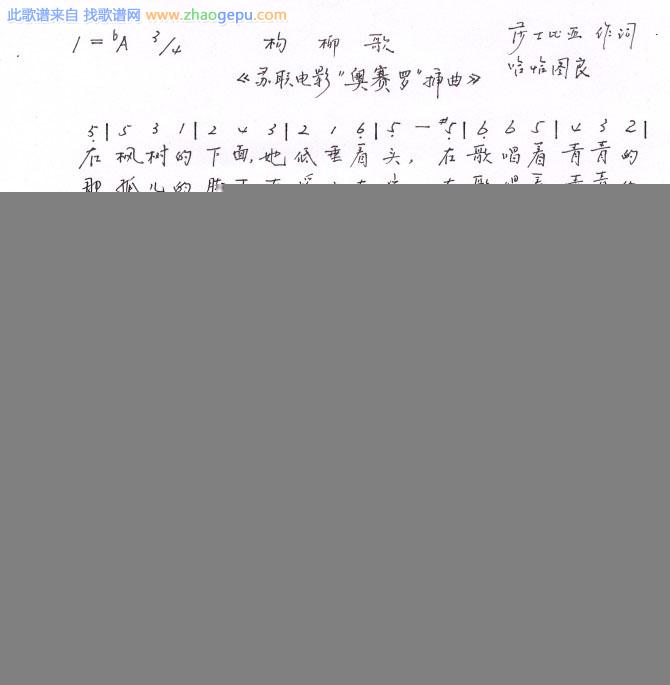 此歌谱来自 找歌谱网
www.zhaogepu.com
1=♭A 3/4 杨柳歌 莎士比亚 作词
《苏联电影"奥赛罗"插曲》 哈恰图良
5̣ | 5 3 1 | 2 4 3 | 2 1 6̣ | 5̣ — #5̣ | 6̣ 6 5 | 4 3 2 |
在枫树的下面,她低垂着头, 在歌唱着青青的
那孤儿的